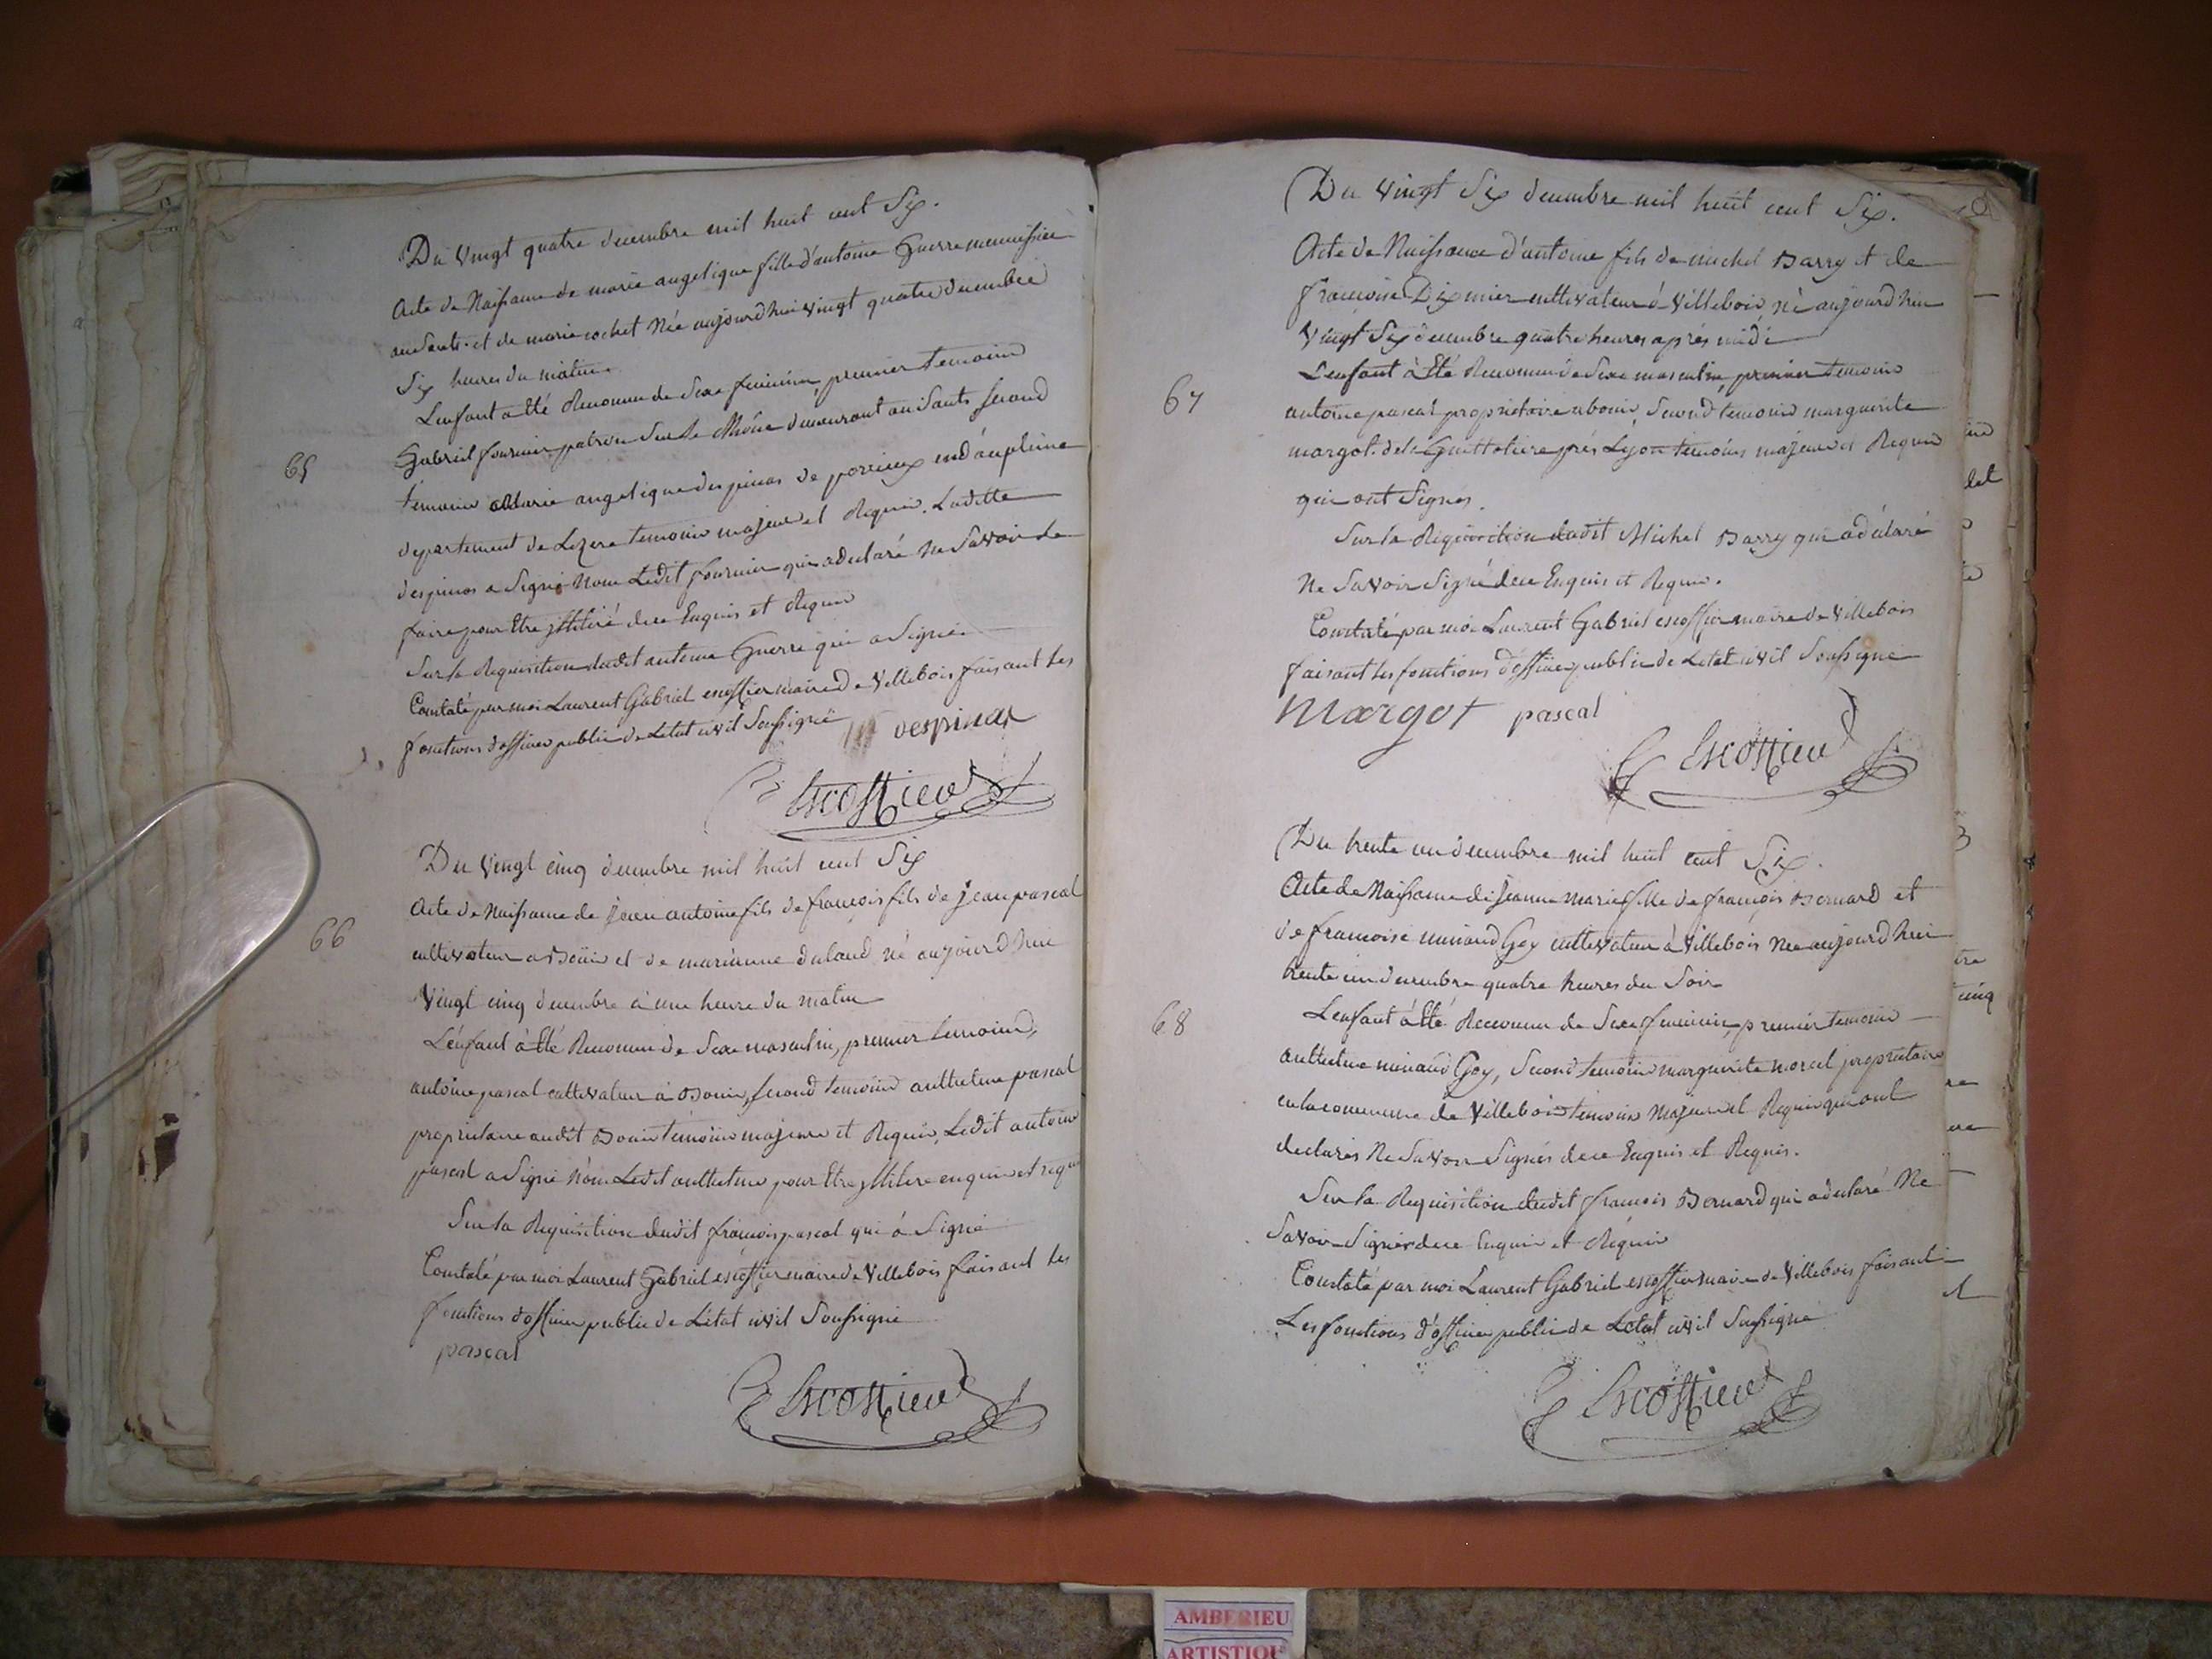 Du Vingt quatre decembre mil huit cent Six.
Acte de Naissance de marie angelique fille d'antoine Guerre menuisier
au Sault et de marie cochet Née aujourdhui vingt quatre decembre
Six heures du matin
65
L'enfant a été Reconnu de Sexe feminin, premier temoin
Gabriel fournier patron Sur le Rhône demeurant au Sault Second
temoin Marie angelique despinas de porcieux en dauphine
departement de Lizere temoins majeurs et Requis. Laditte
despinas a Signé Non Ledit fournier qui a declaré ne Savoir le
faire pour Etre illitéré de ce Enquis et Requis
Sur la Requisition dudit antoine Guerre qui a Signé
Constaté par moi Laurent Gabriel escoffier maire de Villebois faisant les
fonctions d'officier public de Letat civil Soussigné
despinas
Escoffier
Du Vingt cinq decembre mil huit cent Six
66
Acte de Naissance de jean antoine fils de françois fils de jean pascal
cultivateur a Bouis et de marianne dulaud né aujourdhui
Vingt cinq decembre à une heure du matin
L'enfant à été Reconnu de Sexe masculin, premier temoin,
antoine pascal cultivateur à Bouis, Second temoin anthelme pascal
proprietaire audit Bouis temoins majeurs et Requis, Ledit antoine
pascal a Signé Non Ledit anthelme pour Etre illitere enquis et requis
Sur la Requisition dudit françois pascal qui à Signé
Constaté par moi Laurent Gabriel escoffier maire de Villebois faisant les
fonctions d'officier public de Létat civil Soussigné
pascal
Escoffier
Du vingt Six decembre mil huit cent Six.
Acte de Naissance d'antoine fils de michel Barry et de
françoise Diximier cultivateur à Villebois, né aujourdhui
Vingt Six decembre quatre heures après midi
67
L'enfant à Eté Reconnu de Sexe masculin, premier temoins
antoine pascal proprietaire a bouis, Second temoin marguerite
margot de la Guillotiere près Lyon temoins majeurs et Requis
qui ont Signés.
Sur la Requisition dudit Michel Barry qui a déclaré
Ne Savoir Signé de ce Enquis et Requis.
Constaté par moi Laurent Gabriel escoffier maire de Villebois
faisant les fonctions d'officier public de Letat civil Soussigné
Margot pascal
Escoffier
Du trente un decembre mil huit cent Six.
Acte de Naissance de Jeanne Marie fille de françois Bernard et
de francoise minaud Goy cultivateur à Villebois Née aujourdhui
trente un decembre quatre heures du Soir
68
L'enfant à été Reconnu de Sexe feminin, premier temoin
anthelme minaud Goy, Second temoin marguerite morel proprietaire
en la commune de Villebois temoins majeurs et Requis qui ont
declarés Ne Savoir Signés de ce Enquis et Requis.
Sur la Requisition dudit françois Bernard qui a declaré Ne
Savoir Signer de ce Enquis et Requis
Constaté par moi Laurent Gabriel escoffier maire de Villebois faisant
Les fonctions d'officier public de Letat civil Soussigné
Escoffier
AMBERIEU
ARTISTIQU